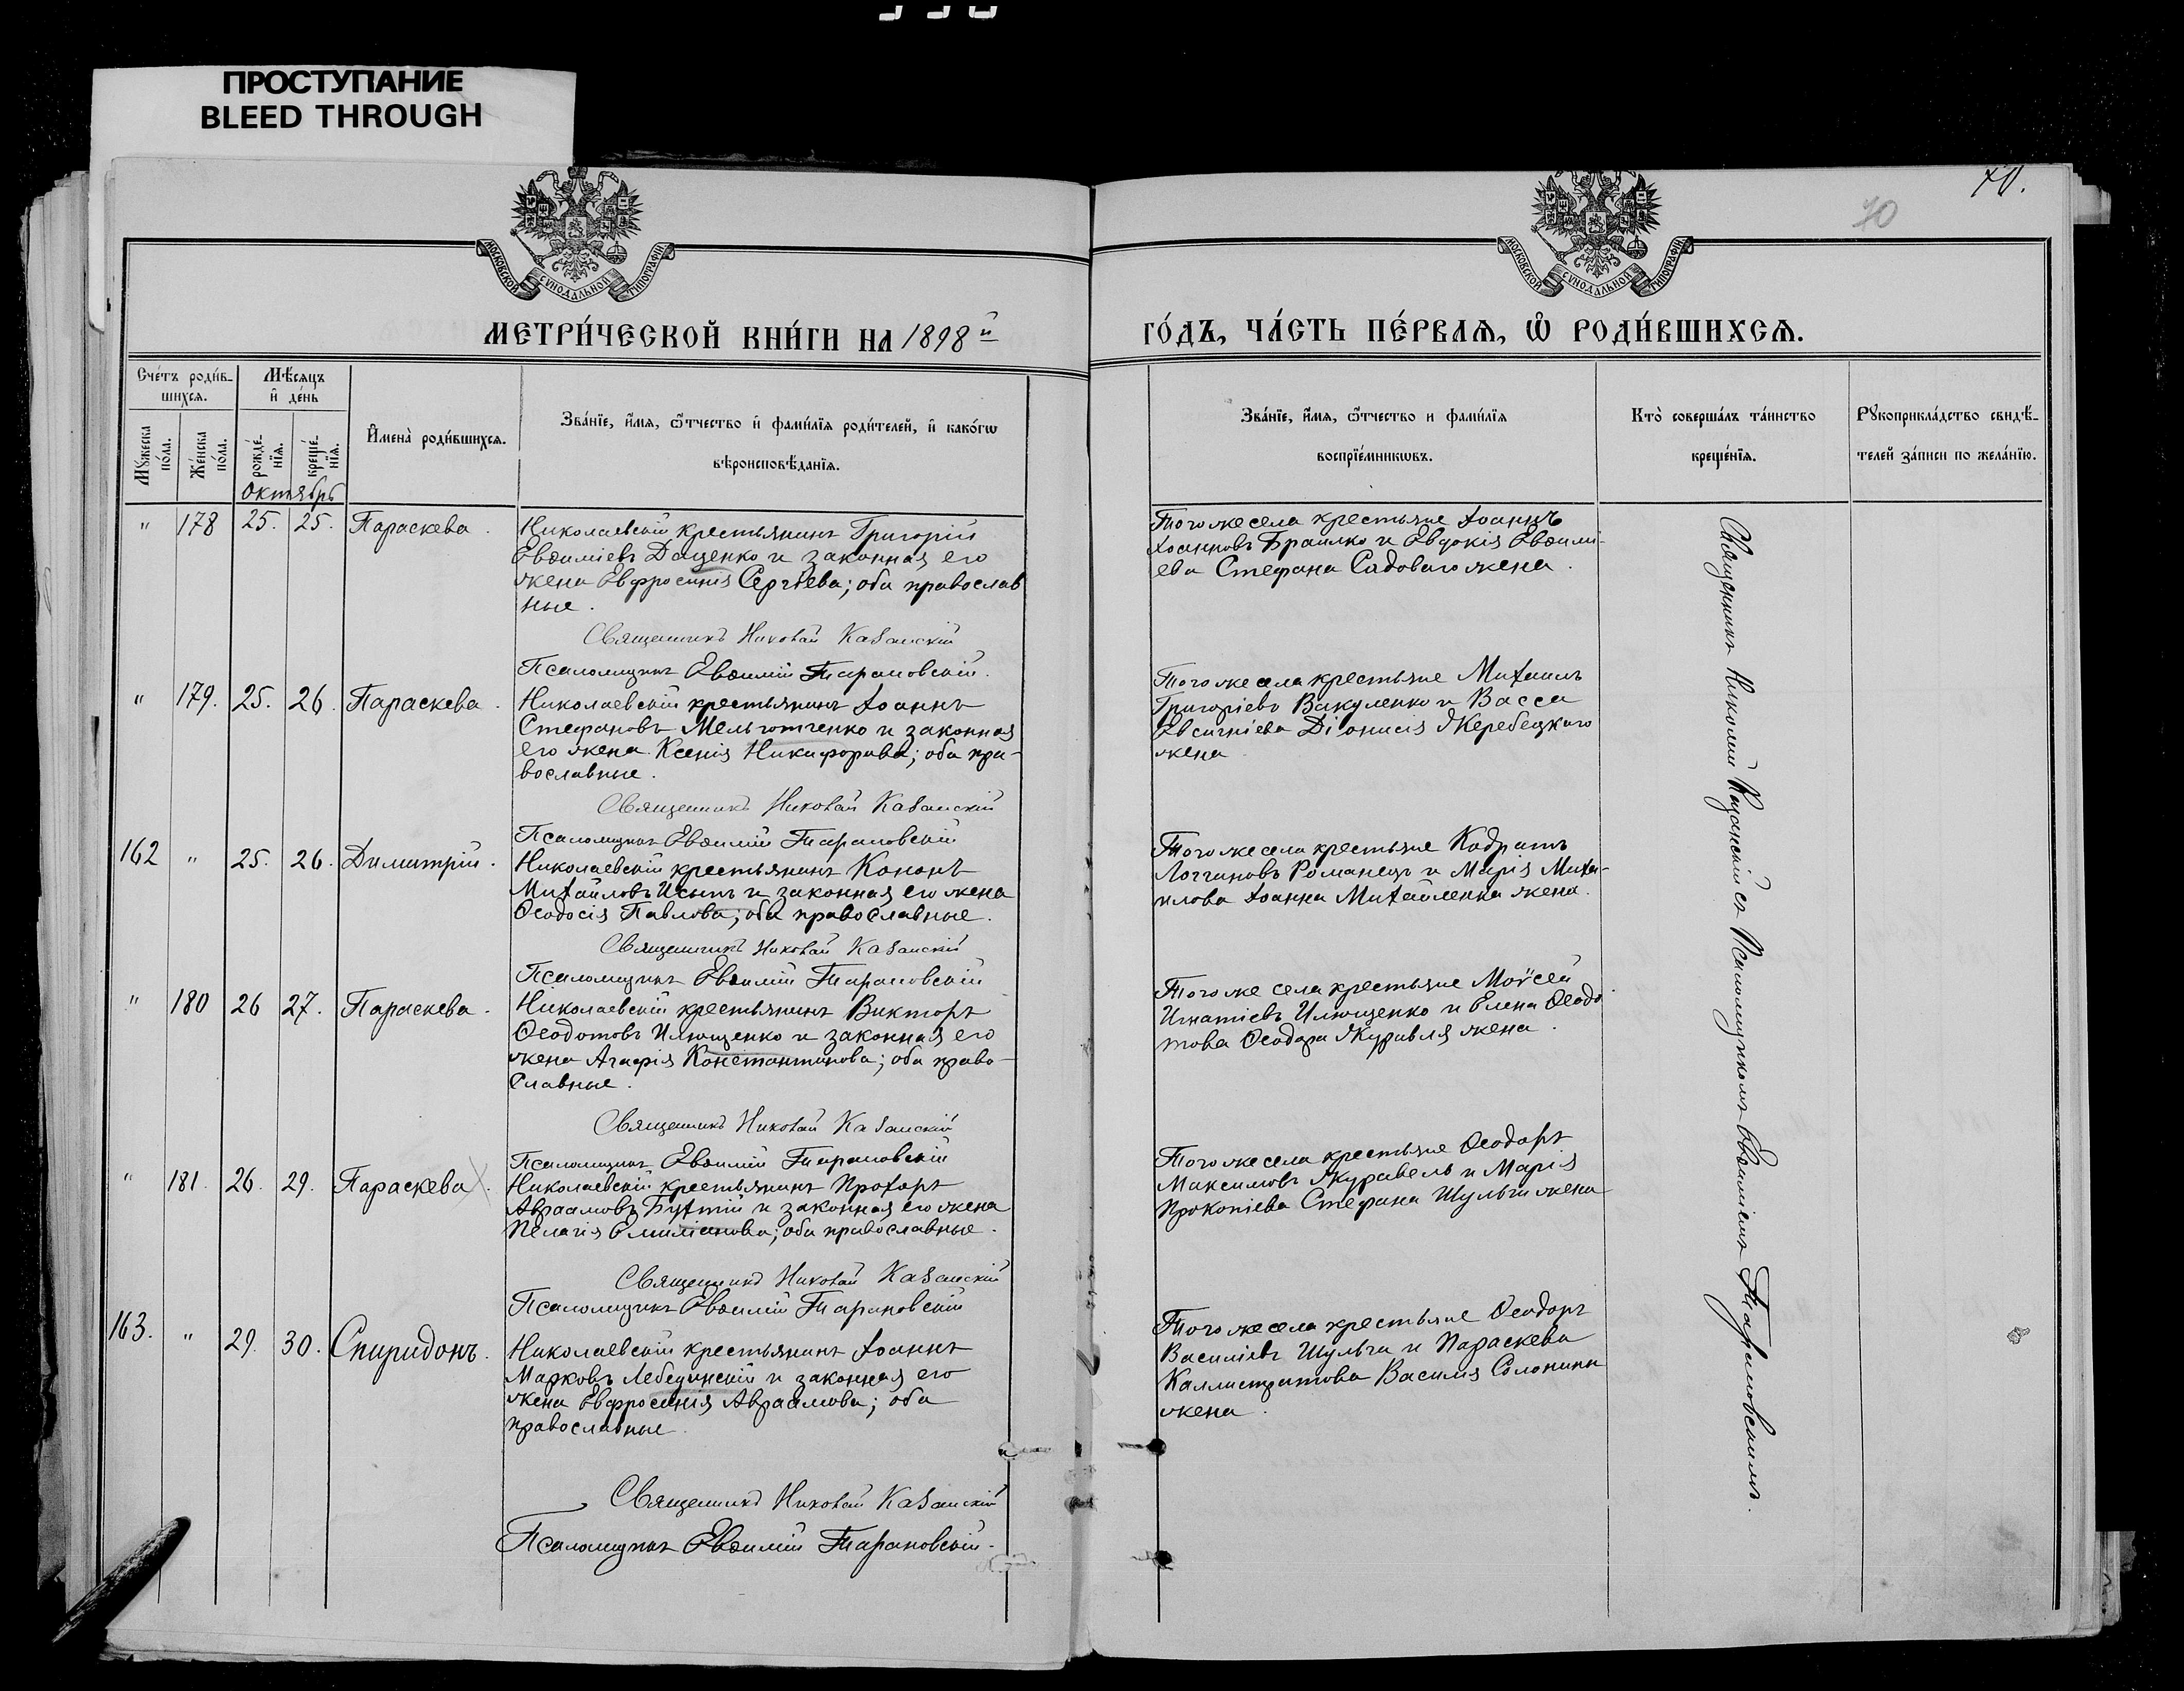 ПРОСТУПАНИЕ
BLEED THROUGH
70.
70
МОСКОВСКОЙ СѴНОДАЛЬНОЙ ТИПОГРАФІИ
МОСКОВСКОЙ СѴНОДАЛЬНОЙ ТИПОГРАФІИ
МЕТРИ́ЧЕСКОЙ КНИ́ГИ НА 1898й
ГО́ДЪ, ЧА́СТЬ ПЕ́РВАЯ, Ѿ РОДИ́ВШИХСЯ.
Сче́тъ роди́в-
шихся.
Мѣ́сяцъ
и҆ де́нь
Мꙋ́жеска по́ла.
Же́нска по́ла.
рожде́нїя.
креще́нїя.
И҆мена̀ роди́вшихся.
Зва́нїе, и҆́мя, ѿтчество и҆ фами́лїя роди́телей, и҆ како́гѡ
вѣроисповѣ́данїя.
Октябрь
Зва́нїе, и҆́мя, ѿтчество и фами́лїя
воспрїе́мникѡвъ.
Кто̀ соверша́лъ та́инство
креще́нїя.
Рꙋкоприкла́дство свидѣ́-
телей за́писи по жела́нїю.
" 178 25. 25. Параскева.
Николаевскій крестьянинъ Григорій
Евѳиміевъ Даценко и законная его
жена Евфросинія Сергѣева; оба православ
ные.
Священникъ Николай Казанскій
Псаломщикъ Евѳимій Тарановскій.
Того же села крестьяне Іоаннъ
Іоанновъ Браилко и Евдокія Евѳимі-
ева Стефана Садоваго жена.
" 179. 25. 26. Параскева.
Николаевскій крестьянинъ Іоаннъ
Стефановъ Мельготченко и законная
его жена Ксенія Никифорова; оба пра-
вославные.
Священникъ Николай Казанскій
Псаломщикъ Евѳимій Тарановскій
Того же села крестьяне Михаилъ
Григоріевъ Вакуленко и Васса
Евсигніева Діонисія Жеребецкаго
жена
162 " 25. 26. Димитрій.
Николаевскій крестьянинъ Кононъ
Михайловъ Исыпъ и законная его жена
Ѳеодосія Павлова; оба православные.
Священникъ Николай Казанскій
Псаломщикъ Евѳимій Тарановскій
Того же села крестьяне Кодратъ
Логгиновъ Романецъ и Марія Миха-
илова Іоанна Михайленка жена.
" 180 26 27. Параскева.
Николаевскій крестьянинъ Викторъ
Ѳеодотовъ Илющенко и законная его
жена Агафія Константинова; оба право-
славные.
Священникъ Николай Казанскій
Псаломщикъ Евѳимій Тарановскій
Того же села крестьяне Моѵсей
Игнатіевъ Илющенко и Елена Ѳеодо
това Ѳеодора Журавля жена.
" 181. 26. 29. Параскева.
Николаевскій крестьянинъ Прохоръ
Авраамовъ Бухтій и законная его жена
Пелагія Емиліанова; оба православные.
Священникъ Николай Казанскій
Псаломщикъ Евѳимій Тарановскій
Того же села крестьяне Ѳеодоръ
Максимовъ Журавель и Марія
Прокопіева Стефана Шульги жена
163. " 29. 30. Спиридонъ.
Николаевскій крестьянинъ Іоаннъ
Марковъ Лебединскій и законная его
жена Евфросинія Авраамова; оба
православные.
Священникъ Николай Казанскій
Псаломщикъ Евѳимій Тарановскій.
Того же села крестьяне Ѳеодоръ
Василіевъ Шульга и Параскева
Каллистратова Василія Солонини
жена.
Священникъ Николай Казанскій съ Псаломщикомъ Евѳиміемъ Тарановскимъ.